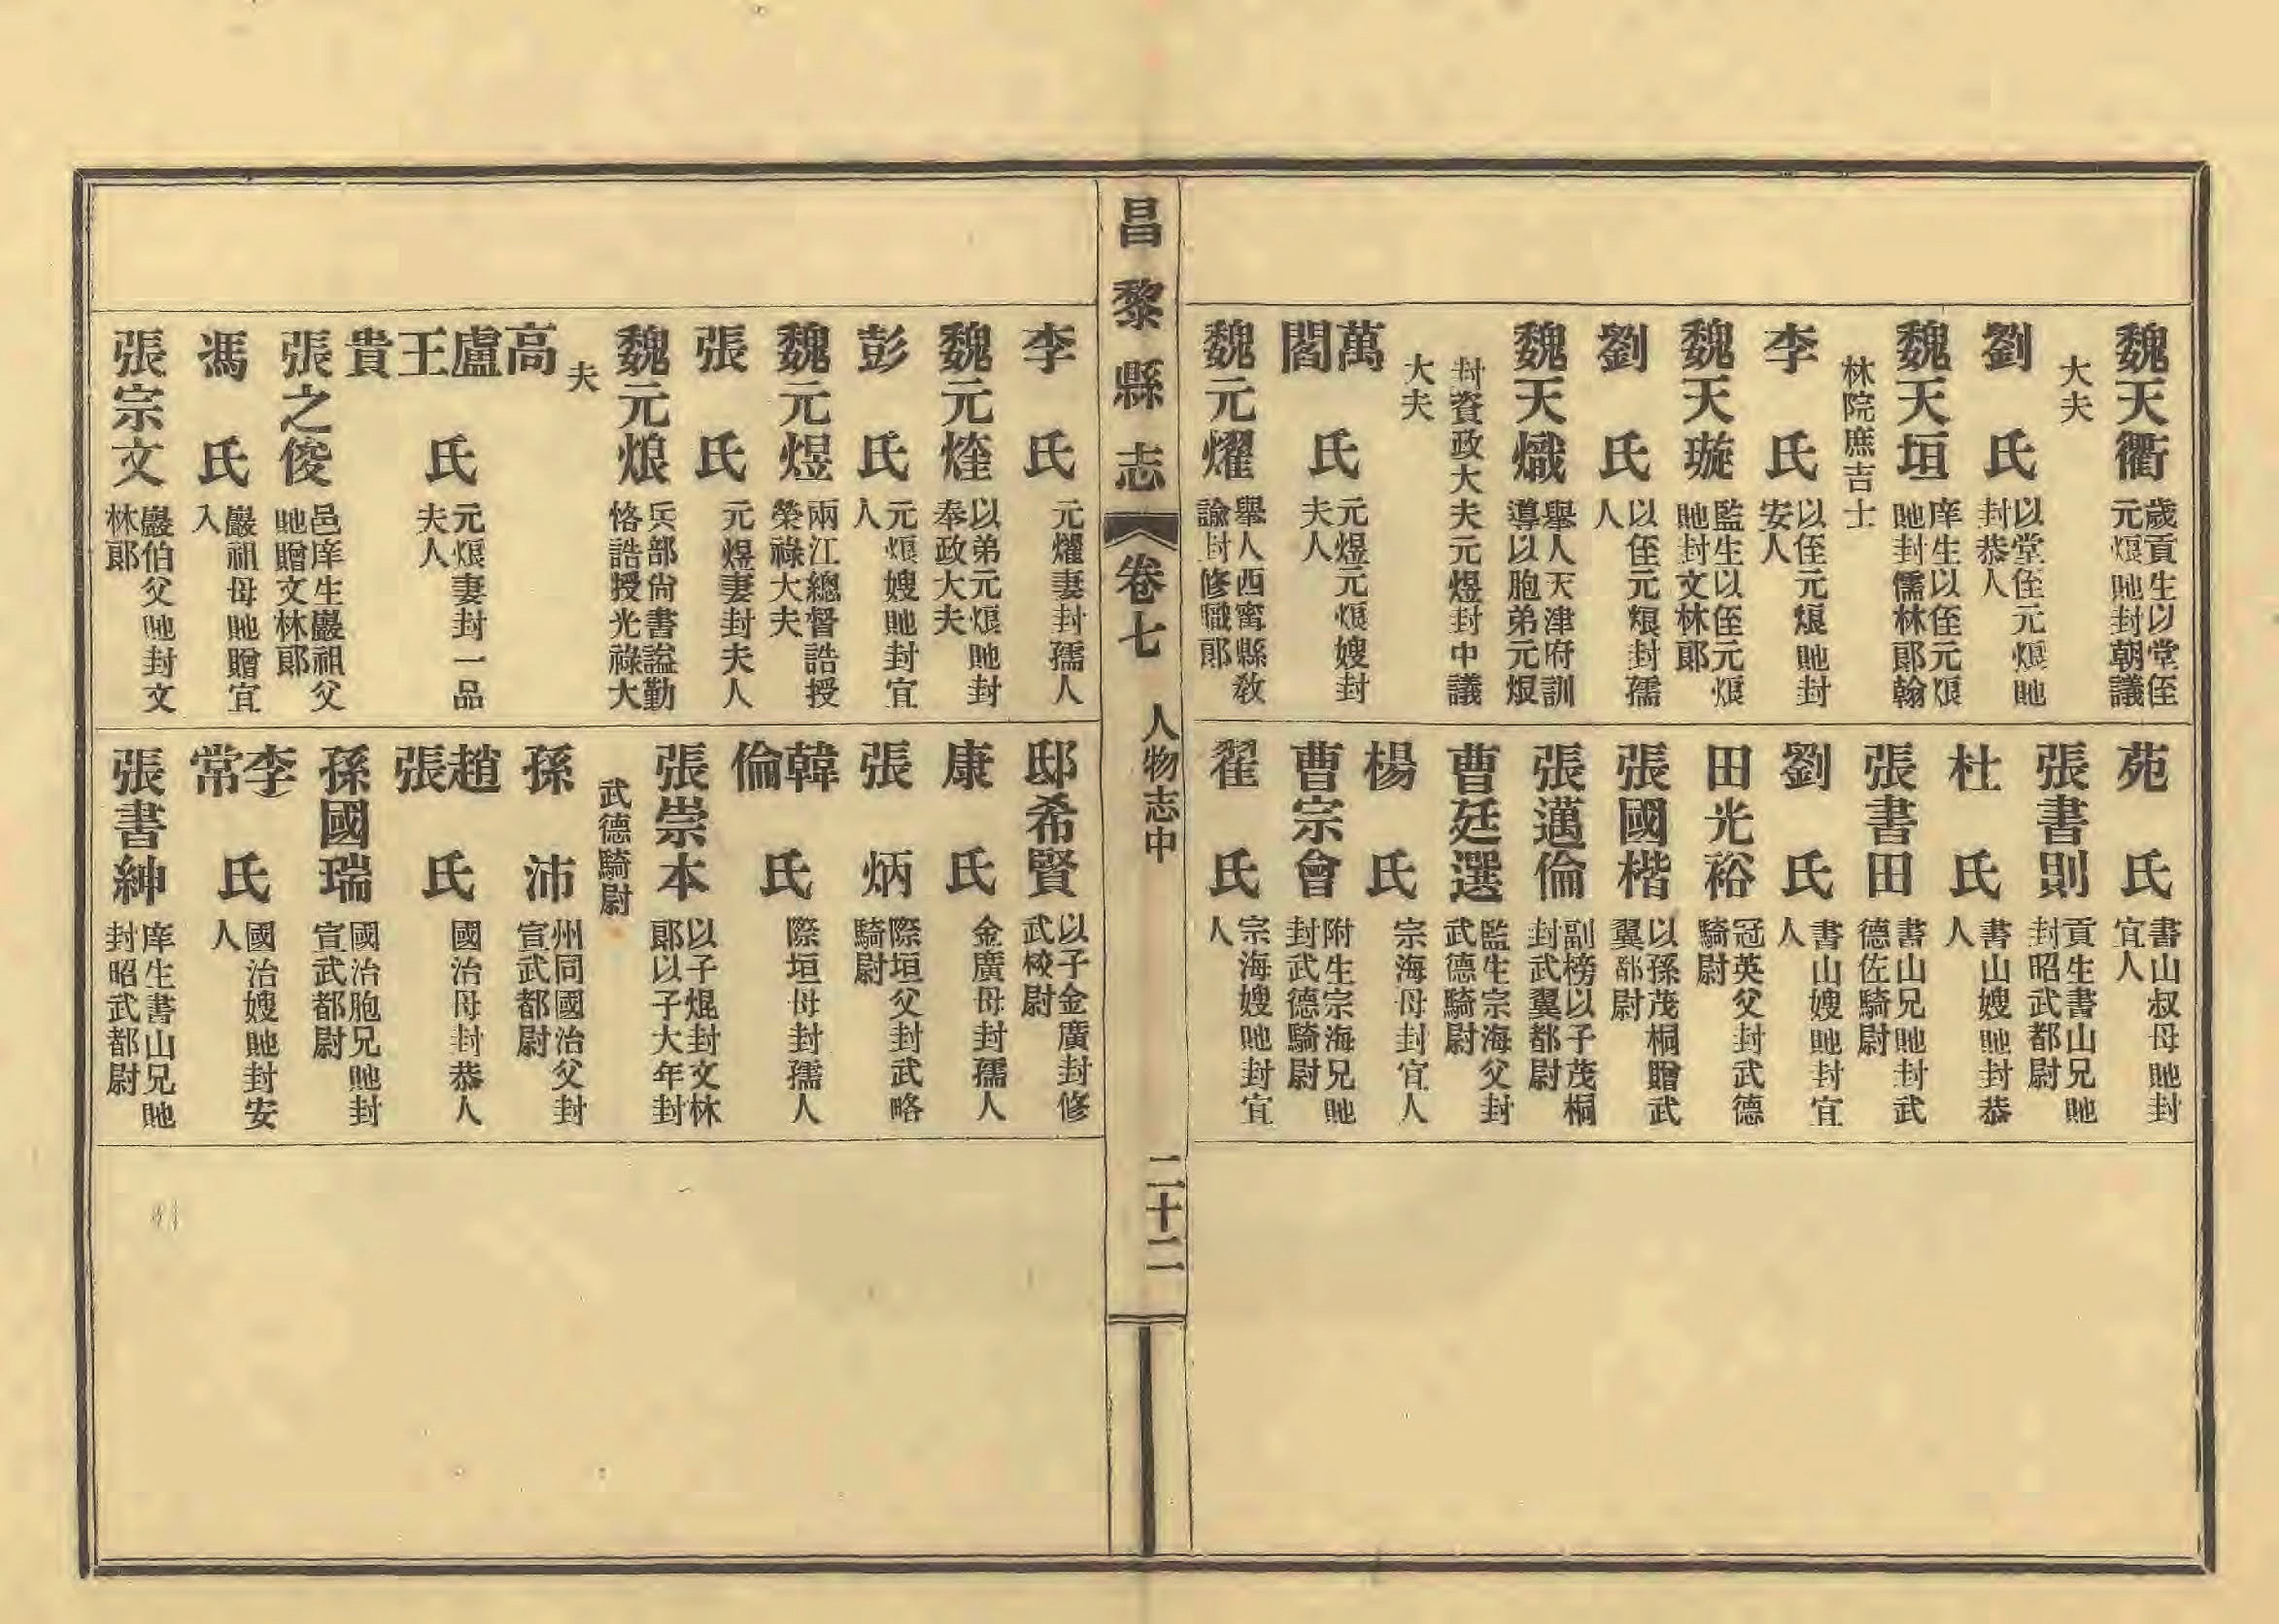 魏天衢 歲貢生以堂侄元烺貤封朝議大夫
劉氏 以堂侄元烺貤封恭人
魏天垣 庠生以侄元烺貤封儒林郎翰林院庶吉士
李氏 以侄元烺貤封安人
魏天璇 監生以侄元烺貤封文林郎
劉氏 以侄元烺封孺人
魏天熾 舉人天津府訓導以胞弟元烺封資政大夫元煜封中議大夫
萬閻氏 元煜元烺嫂封夫人
魏元燿 舉人西寗縣敎諭封修職郎
苑氏 書山叔母貤封宜人
張書則 貢生書山兄貤封昭武都尉
杜氏 書山嫂貤封恭人
張書田 書山兄貤封武德佐騎尉
劉氏 書山嫂貤封宜人
田光裕 冠英父封武德騎尉
張國楷 以孫茂桐贈武翼都尉
張邁倫 副榜以子茂桐封武翼都尉
曹廷選 監生宗海父封武德騎尉
楊氏 宗海母封宜人
曹宗會 附生宗海兄貤封武德騎尉
翟氏 宗海嫂貤封宜人
昌黎縣志 卷七 人物志中 二十二
李氏 元燿妻封孺人
魏元煃 以弟元烺貤封奉政大夫
彭氏 元烺嫂貤封宜人
魏元煜 兩江總督誥授榮祿大夫
張氏 元煜妻封夫人
魏元烺 兵部尙書謚勤恪誥授光祿大夫
高盧王貴氏 元烺妻封一品夫人
張之俊 邑庠生巖祖父貤贈文林郎
馮氏 巖祖母貤贈宜人
張宗文 巖伯父貤封文林郎
邸希賢 以子金廣封修武校尉
康氏 金廣母封孺人
張炳 際垣父封武略騎尉
韓倫氏 際垣母封孺人
張崇本 以子焜封文林郎以子大年封武德騎尉
孫沛 州同國治父封宣武都尉
趙張氏 國治母封恭人
孫國瑞 國治胞兄貤封宣武都尉
李常氏 國治嫂貤封安人
張書紳 庠生書山兄貤封昭武都尉